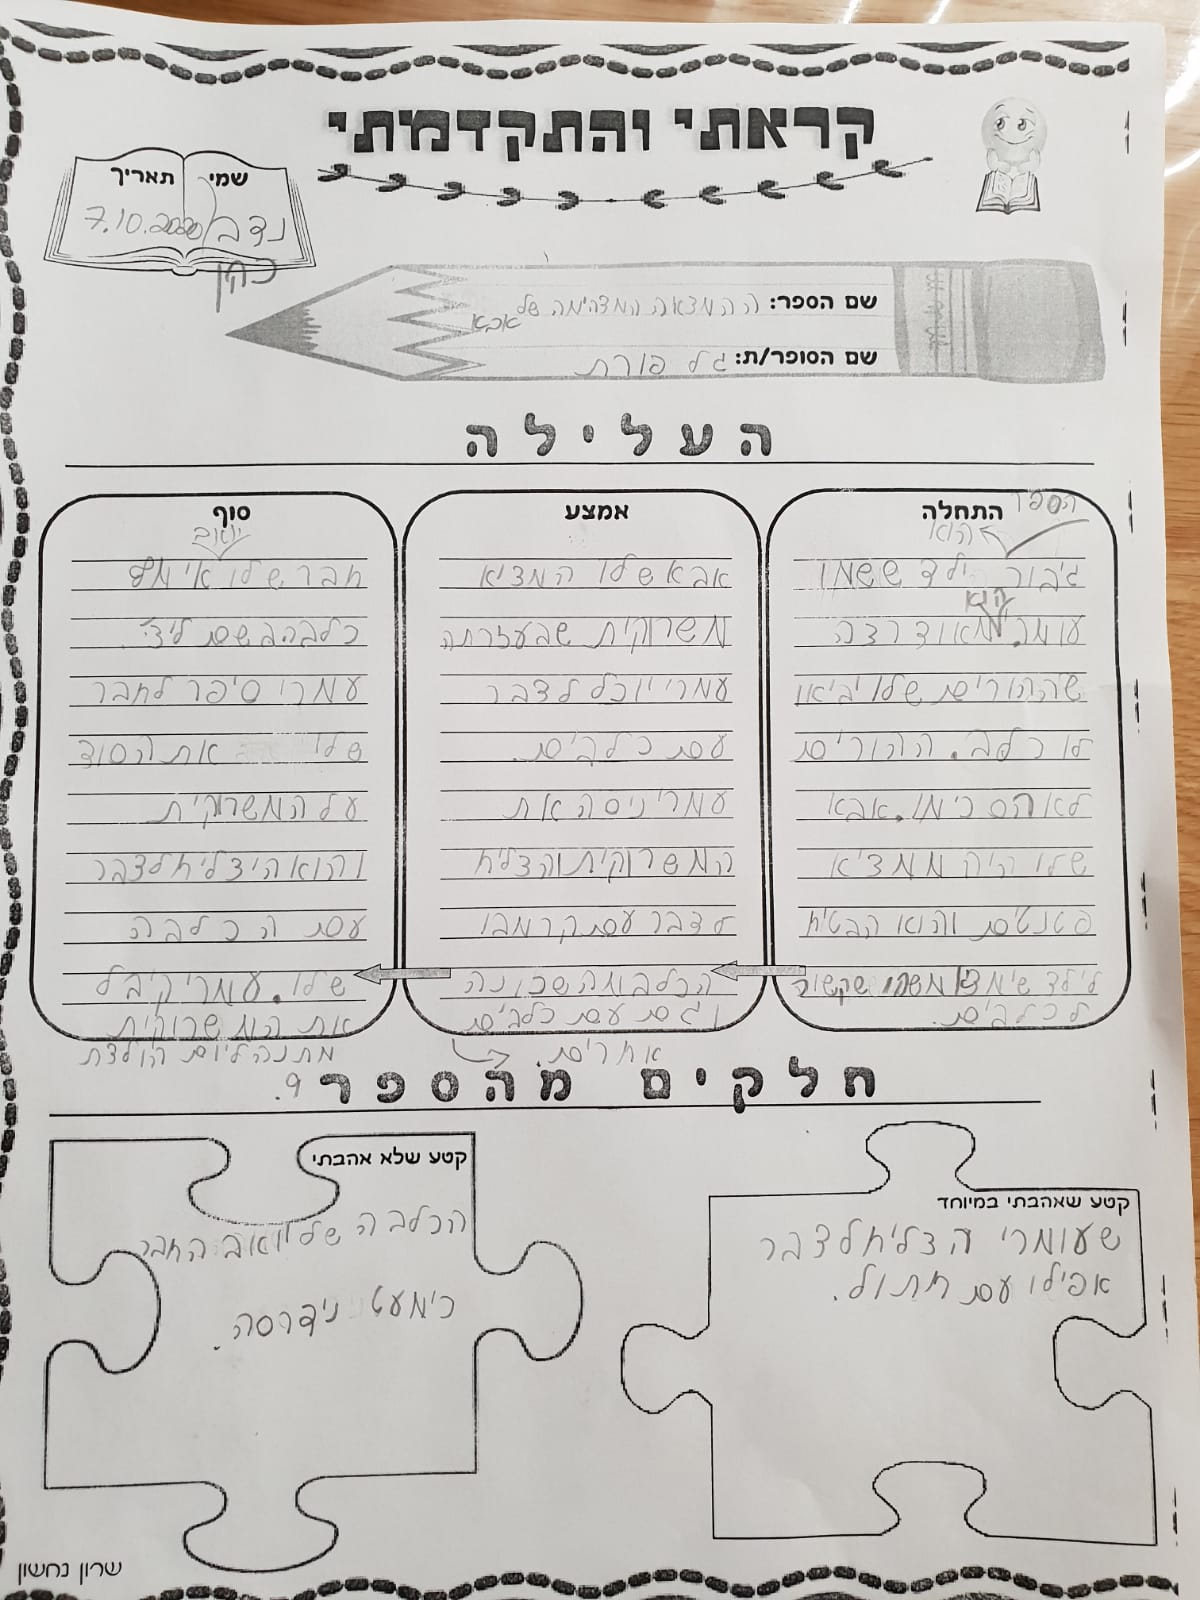 קראתי והתקדמתי
שמי
תאריך
נדב
7.10.2020
כהן
שם הספר: ההמצאה המדהימה של אבא
שם הסופר/ת: גל פורת
העלילה
התחלה
הספר
הוא
גיבור ילד ששמו
הוא
עומר. מאוד רצה
שההורים שלו יביאו
לו כלב. ההורים
לא הסכימו. אבא
שלו היה ממציא
פטנטים והוא הבטיח
לילד שימציא משהו שקשור
לכלבים.
אמצע
אבא שלו המציא
משרוקית שבעזרתה
עמרי יוכל לדבר
עם כלבים.
עמרי ניסה את
המשרוקית והצליח
לדבר עם קרמבו
הכלב מהשכונה
וגם עם כלבים
אחרים.
סוף
יואב
חבר שלו אימץ
כלבה בשם ליצ'י.
עמרי סיפר לחבר
שלו את הסוד
על המשרוקית
והוא היצליח לדבר
עם הכלבה
שלו. עמרי קיבל
את המשרוקית
מתנה ליום הולדת
9.
חלקים מהספר
קטע שאהבתי במיוחד
שעומרי הצליח לדבר
אפילו עם חתול.
קטע שלא אהבתי
הכלבה של יואב החבר
כימעט נידרסה.
שרון נחשון